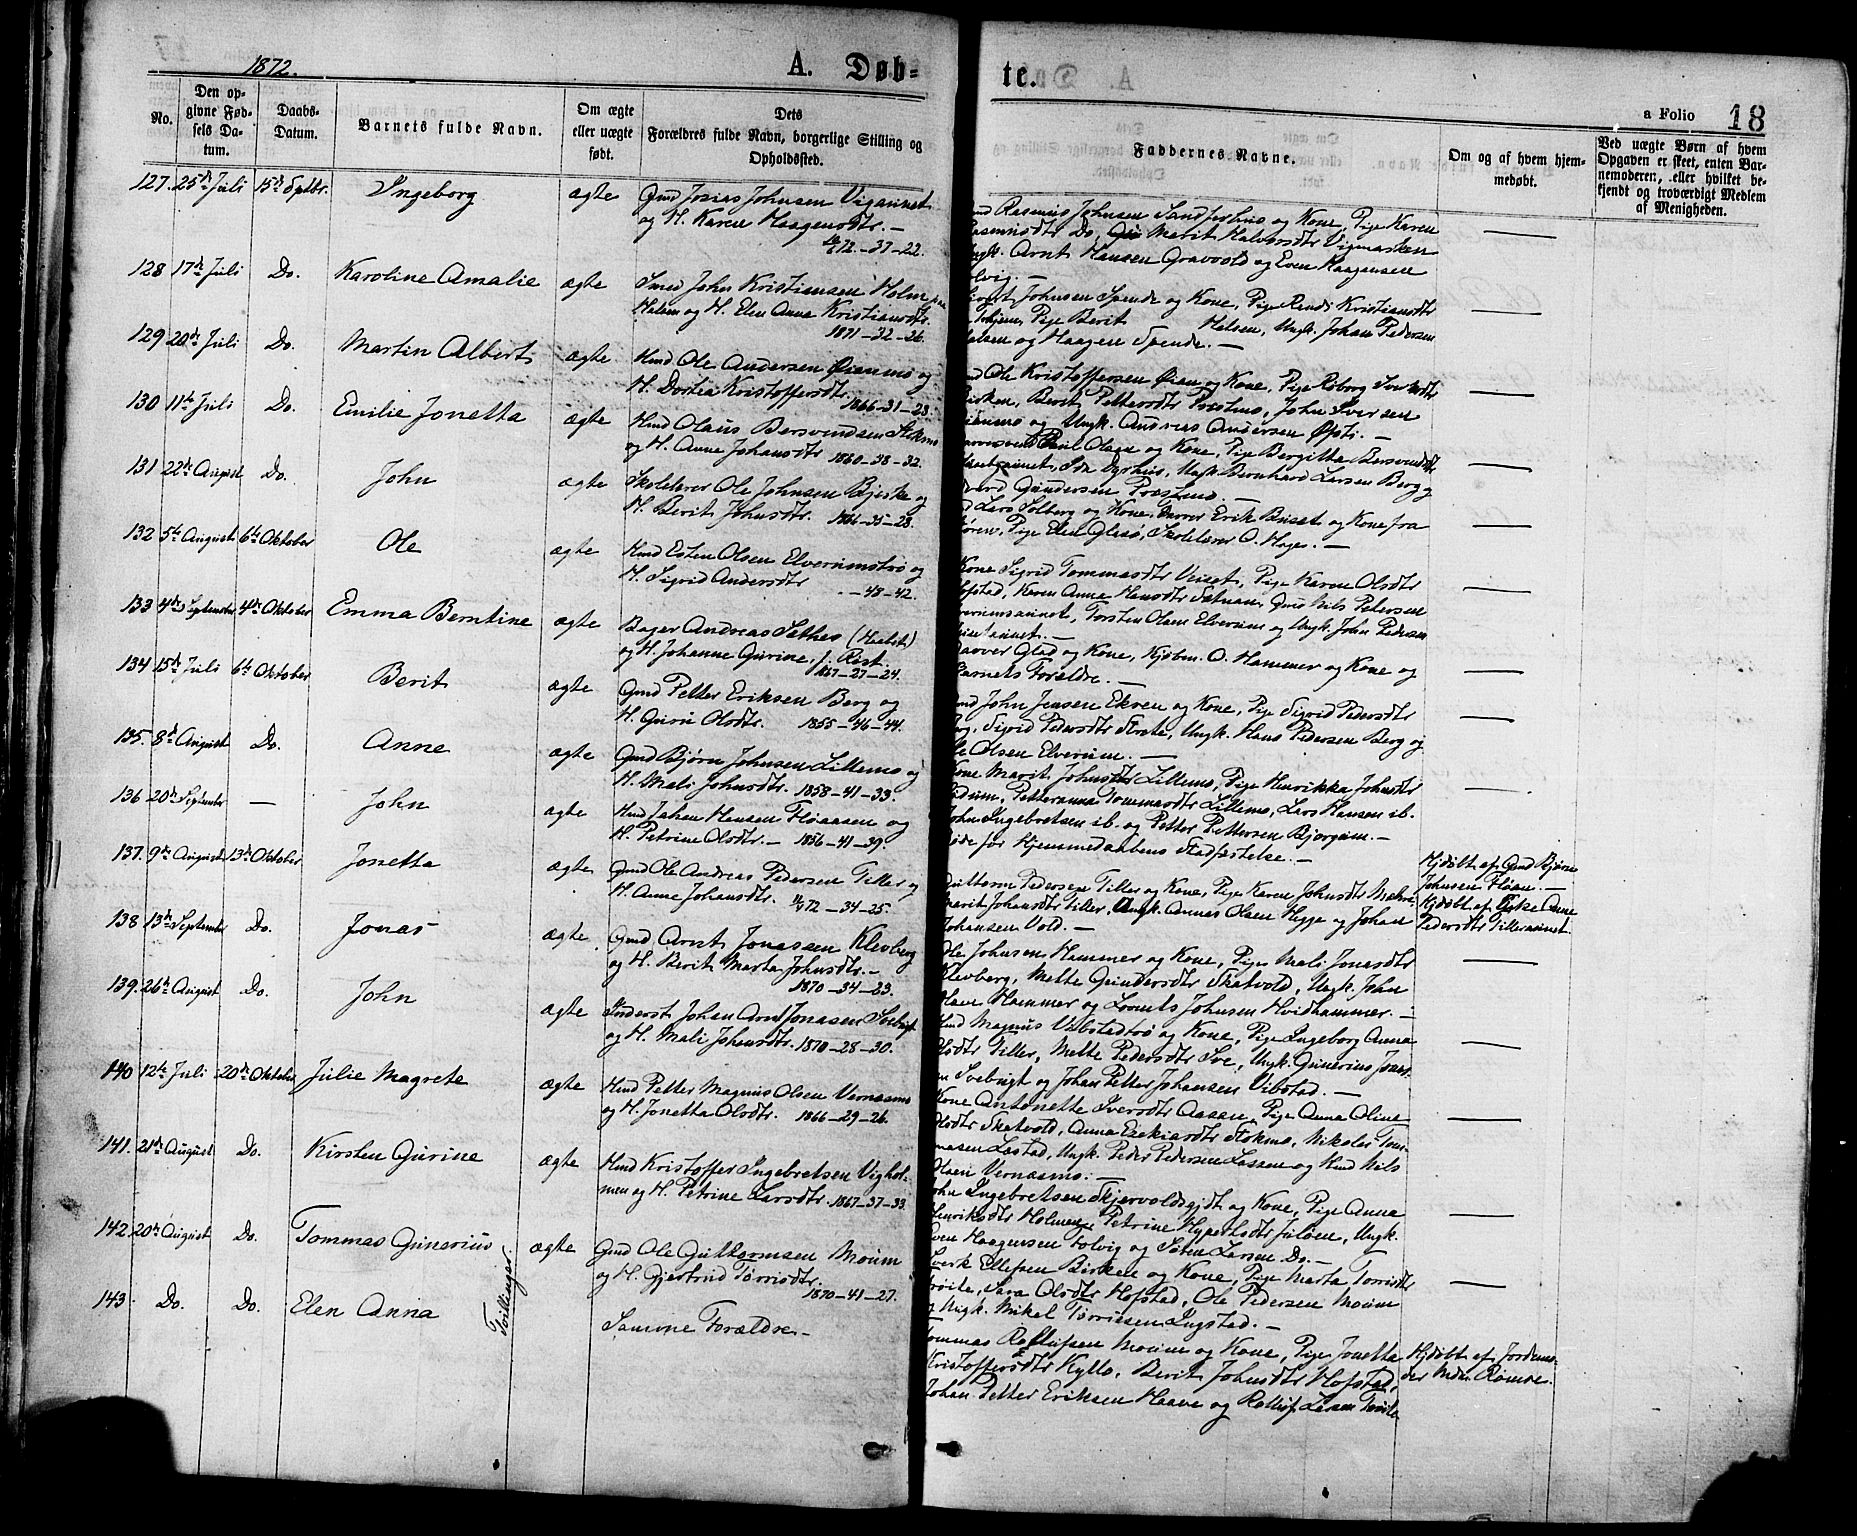 1872.
A. Døb-
te.
a Folio 18
No.
Den op-
givne Fød-
sels Da-
tum.
Daabs-
Datum.
Barnets fulde Navn.
Om ægte
eller uægte
født.
Dets
Forældres fulde Navn, borgerlige Stilling og
Opholdssted.
Faddernes Navne.
Om og af hvem hjem-
medøbt.
Ved uægte Børn af hvem
Opgaven er skeet, enten Bar-
nemoderen, eller hvilket be-
kjendt og troværdigt Medlem
af Menigheden.
127. 25de Juli 15de Septbr. Ingeborg ægte Gmd Josias Johnsen Vigaunet
og H. Karen Haagensdtr. —
72 - 37 - 22.
Rasmus Johnsen Sandferhus og Kone, Pige Karen
Do, Marit Halvorsdtr Vigmarken
Arnt Hansen Gravvold og Even Haagensen
128 17de Juli Do. Karoline Amalie ægte Smed John Kristiansen Holm
Halsen og H. Elen Anna Kristiansdtr.
1871 - 32 - 26.
Johnsen Spende og Kone, Pige Randi Kristiansdtr
Pige Berit Halsen, Ungk. Johan Pedersen
Halsen og Haagen Spende. —
129 20de Juli Do. Martin Albert ægte Hmd Ole Andersen Øianmo og
H. Dortea Kristoffersdtr.
1866 - 31 - 28.
Ole Kristoffersen Øian og Kone, Pige
Berit Pettersdtr Prestmo, John Iversen
Øianmo og Ungk. Andreas Andersen Øfsti. —
130 11te Juli Do. Emilie Jonetta ægte Hmd Olaus Bersvendsen Stokmo
og H. Anne Johansdtr 1860 - 38 - 32.
og Kone, Pige Bergitte Bersvendsdtr
Ungk. Bernhard Larsen Berg og
Gundersen Prestmo. —
131 22de August Do. John ægte Skolelærer Ole Johnsen Bjerke og
H. Berit Johnsdtr. 1864 - 35 - 28.
Lars Solberg og Kone, Erik Buset og Kone fra
Støren, Pige Elen Glesø, Skolelærer O. Hoges. —
132 5te August 6te Oktober Ole ægte Hmd Esten Olsen Elverumstrø og
H. Sigrid Andersdtr
- - 48 - 42.
Kone Sigrid Tommasdtr Veiset, Pige Karen Olsdtr
Hofstad, Karen Anna Hansdtr Sætnan, Gmd Nils Petersen
Torsten Olsen Elverum og Ungk. John Pedersen
133 4de September 4de Oktober Emma Berntine ægte Bager Andreas Sæther (Heelst)
og H. Johanne Gurine f. Rist.
1867 - 27 - 24.
Glad og Kone, Kjøbm. O. Hammer og Kone og
Barnets Forældre. —
134 15de Juli 6te Oktober Berit ægte Gmd Petter Eriksen Berg og
H. Guru Olsdtr. 1855 - 46 - 44.
John Jensen Ekren og Kone, Pige Sigrid Pedersdtr
Berg, Sigrid Pedersdtr Stræte, Ungk. Hans Pedersen Berg og
Ole Olsen Elverum. —
135. 8de August Do. Anne ægte Gmd Bjørn Johnsen Lillemo og
H. Mali Johnsdtr. 1858 - 41 - 33.
Kone Marit Johnsdtr Lillemo, Pige Henrikka Johnsdtr
Petteranna Tommasdtr Lillemo, Lars Hansen ib.
John Ingebretsen ib. og Petter Pettersen Bjørgum. —
136 20de September — John ægte Hmd Johan Hansen Fløaasen og
H. Petrine Olsdtr. — 1856 - 41 - 39.
Døde før Hjemmedaabens Stadfæstelse. —
Hjdøbt af Gmd Bjørn
Johnsen Fløan. —
137. 9de August 13de Oktober Jonetta ægte Gmd Ole Andreas Pedersen Tiller og
H. Anne Johansdtr. 72 - 34 - 25.
Guttorm Pedersen Tiller og Kone, Pige Karen Johnsdtr
Marit Johansdtr Tiller, Ungk. Annas Olsen Hegge og Johan
Johansen Vold. —
Hjdøbt af Enke Anne
Pedersdtr Tilleraunet.
138 13de September Do. Jonas ægte Gmd Arnt Jonassen Klevberg
og H. Berit Marta Johnsdtr. —
1870 - 34 - 23.
Ole Johnsen Hammer og Kone, Pige Mali Jonasdtr
Klevberg, Mette Gundersdtr Skatvold, Ungk. John
Hammer og Johnsen Hvidhammer. —
139. 26de August Do. John ægte Inderst Johan Arnt Jonasen
og H. Mali Johansdtr. 1870 - 28 - 30.
Hmd Magnus Vibstadtrø og Kone, Pige Ingeborg Anna
Olsdtr Tiller, Mette Pedersdtr Sve, Ungk. Gunerius
og Johan Petter Johansen Vibstad. —
140 12te Juli 20de Oktober Julie Magrete ægte Hmd Petter Magnus Olsen Vernæsmo
og H. Jonetta Olsdtr. 1866 - 29 - 26.
Kone Antonette Iversdtr Aasan, Pige Anna Oline
Olsdtr Skatvold, Anna Ezekiasdtr Stokmo, Nikolai Tom-
masen Lastad, Ungk. Peder Pedersen og Hmd Nils
Olsen Vernæsmo. —
141. 21de August Do. Kirsten Gurine ægte Hmd Kristoffer Ingebretsen Vighol-
men og H. Petrine Larsdtr. 1867 - 37 - 33.
John Ingebretsen og Kone, Pige Anna
Henriksdtr Holmen, Petrine Julöen, Ungk.
Even Haagensen Folvig og Søren Larsen Do. —
142. 20de August Do. Tommas Gunerius ægte Gmd Ole Guttormsen Moum
og H. Gjertrud Tørrisdtr.
1870 - 41 - 27.
Ellefsen Birken og Kone, Pige Marta Tørrisdtr
Sara Olsdtr Hofstad, Ole Pedersen Moum
og Ungk. Mikal Tørrissen Ingstad. —
Tvillinger.
143. Do. Do. Elen Anna Samme Forældre —
Tommas Rolluf­sen Moum og Kone, Pige Jonetta
Kristoffersdtr Kyllo, Berit Johnsdtr Hofstad,
Johan Petter Eriksen Haave og Rolluf Larsen
Hjdøbt af Jordemo-
der Mdm. Romoe.